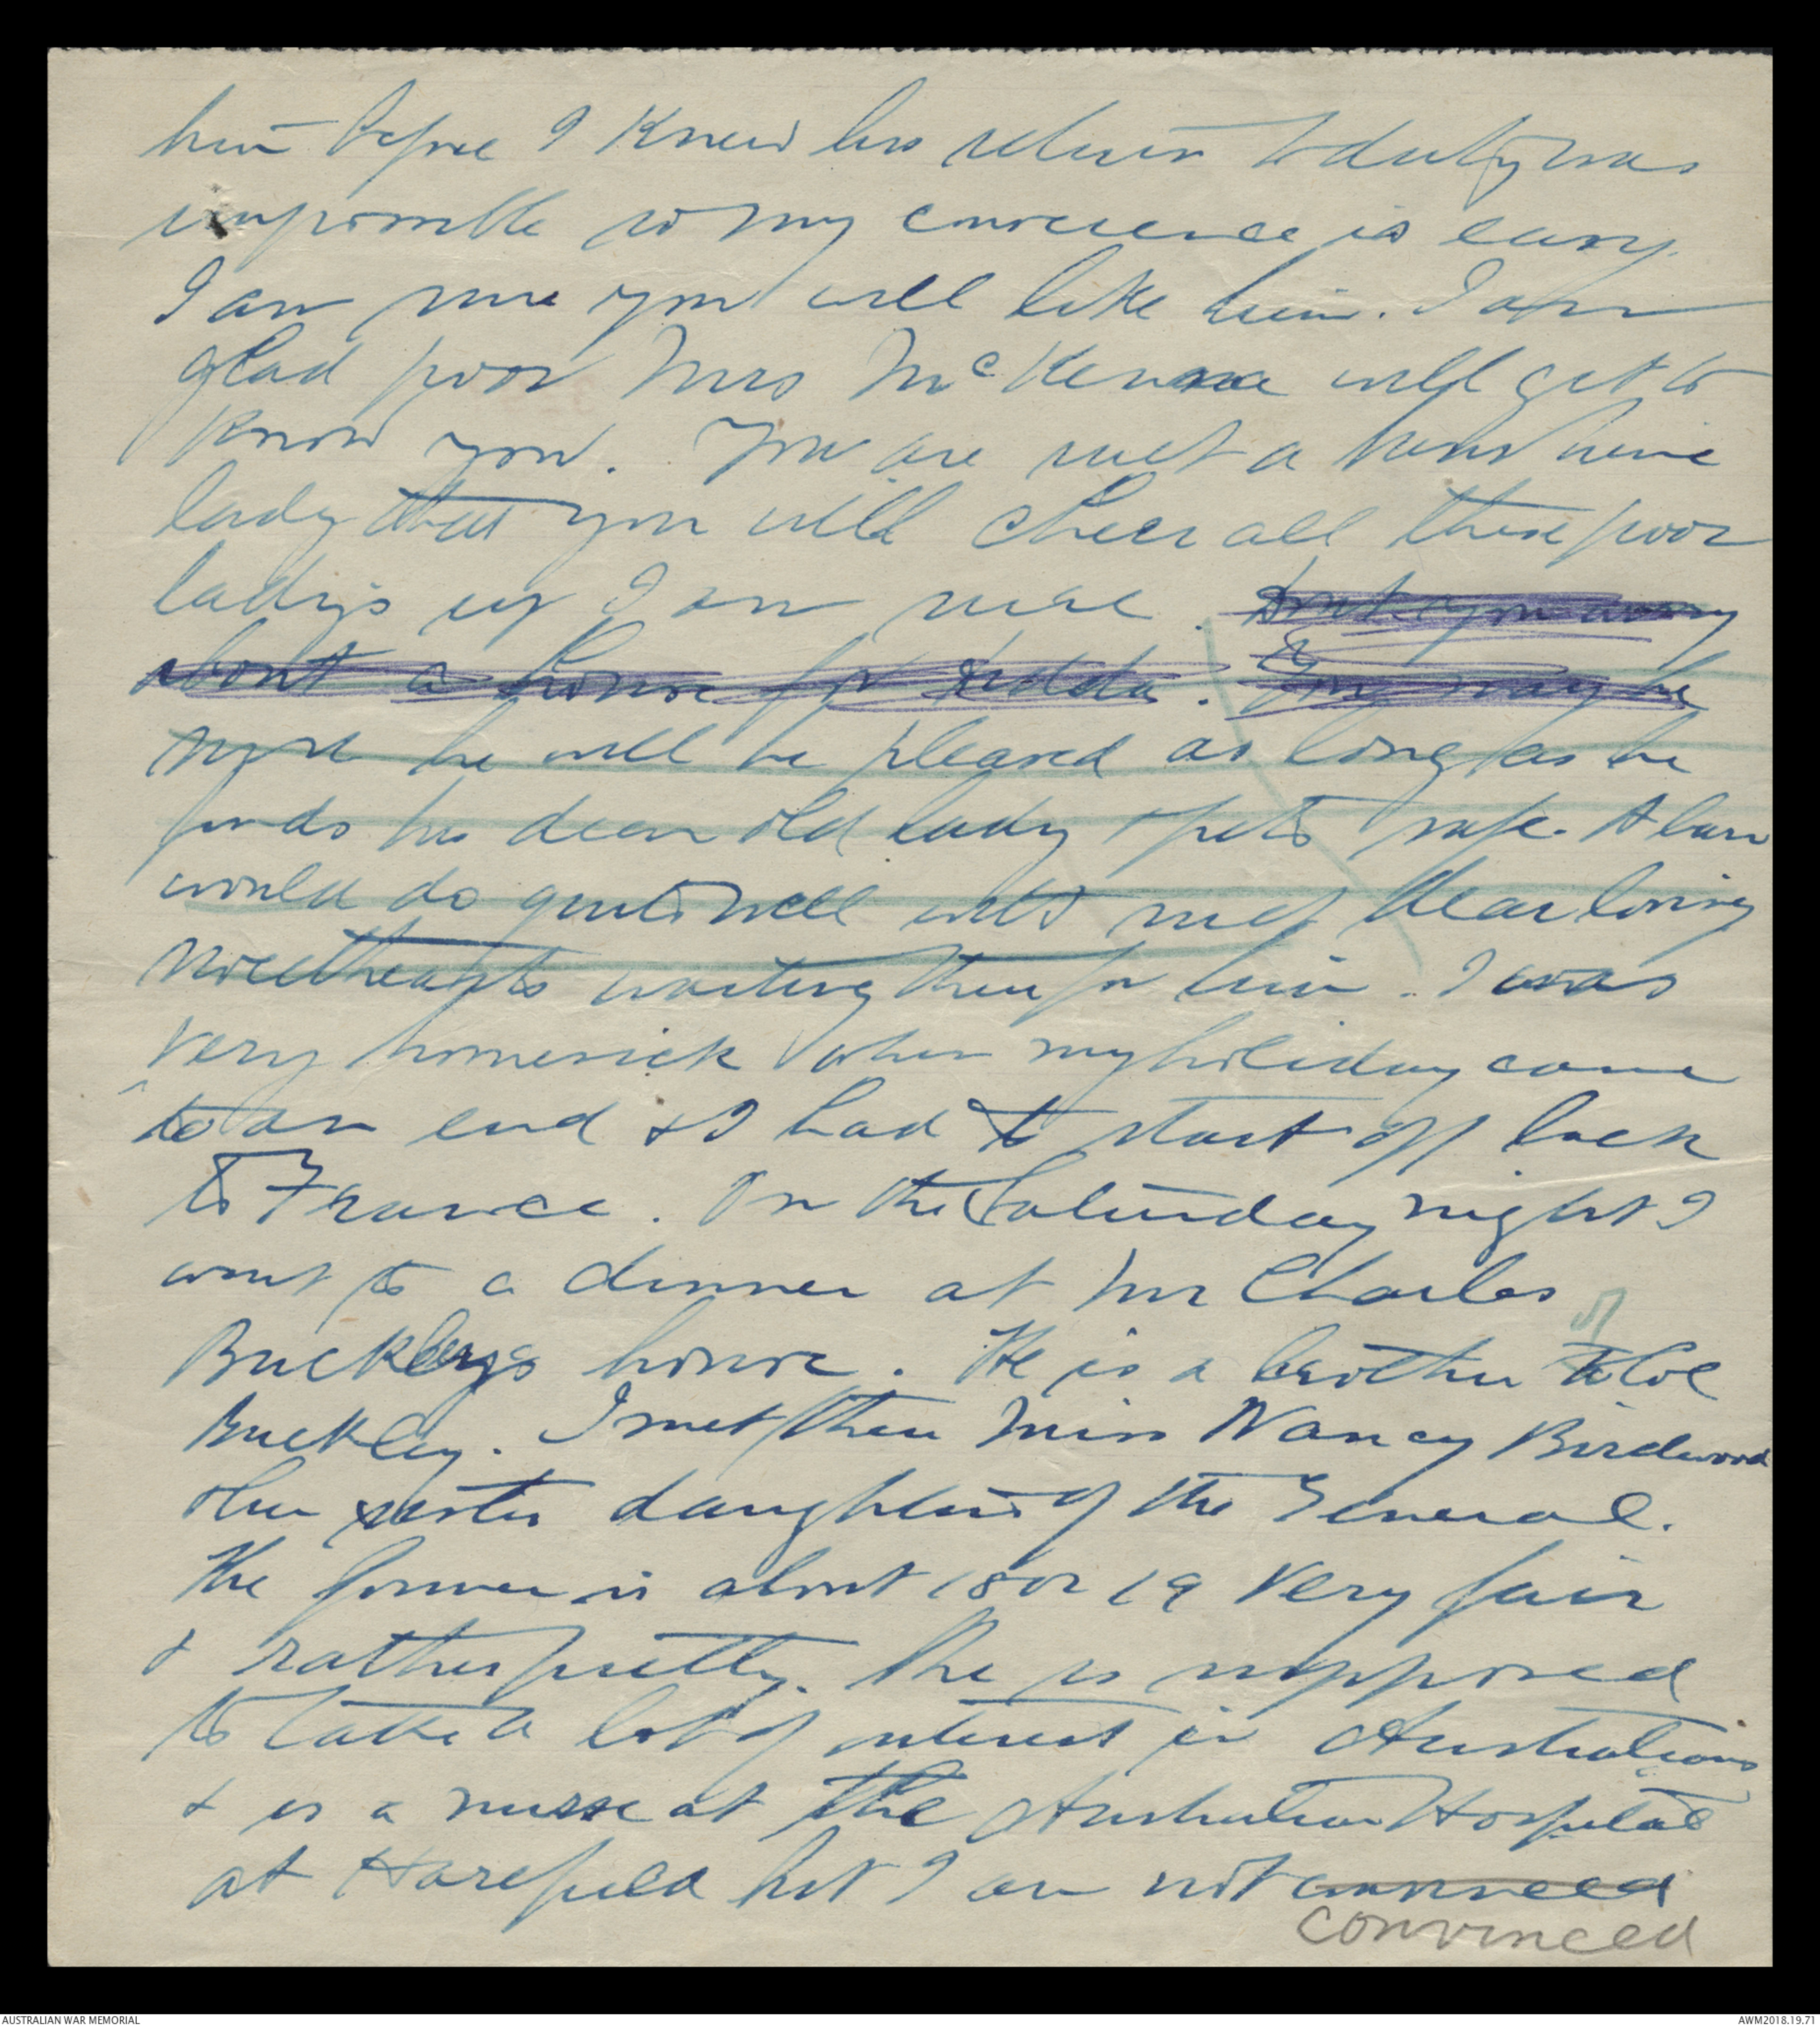 him before I knew his return to duty was
impossible so my conscience is easy.
I am sure you will like him. I am
glad poor Mrs McKenna will get to
know you. You are such a kind
lady that you will cheer all these poor
lady's up I am sure. Dont you worry
about a house for Dadda. You may be
sure he will be pleased as long as he
finds his dear old lady & pets safe. A barn
would do quite well with such dear loving
sweethearts waiting there for him. I was
very homesick when my holiday came
to an end & I had to start off back
to France. On the Saturday night I
went to a dinner at Mr Charles
Buckleys house. He is a brother to Col
Buckley. I met there Miss Nancy Birdwood
& her sister daughters of the General.
The former is about 18 or 19 very fair
& rather pretty. She is supposed
to take a lot of interest in Australians
& is a nurse at the Australian Hospital
at Harefield but I am not convinced
convinced
AUSTRALIAN WAR MEMORIAL
AWM2018.19.71